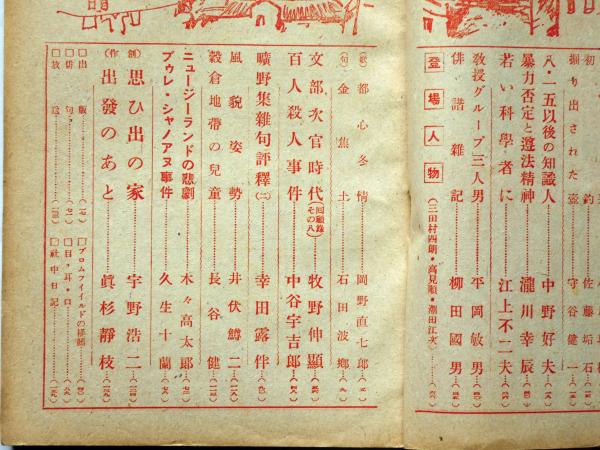 掘り出された壺……守谷健一
八・一五以後の知識人……中野好夫
暴力否定と遵法精神……瀧川幸辰
若い科學者に……江上不二夫
敎授グループ三人男……平岡敏男
俳諧雜記……柳田國男
登場人物（三田村四郎・高見順・潮田江次）
（歌）都心冬情……岡野直七郎
（句）金焦土……石田波鄕
文部次官時代（囘顧錄その八）……牧野伸顯
百人殺人事件……中谷宇吉郎
曠野集雜句評釋（二）……幸田露伴
風貌姿勢……井伏鱒二
穀倉地帶の兒童……長谷健
ニュージーランドの悲劇……木々高太郎
プウレ・シャノアヌ事件……久生十蘭
（創作）思ひ出の家……宇野浩二
出發のあと……眞杉靜枝
□出版
□俳句
□放送
□ブロムフイイルドの橫顏
□目・耳・口
□社中日記